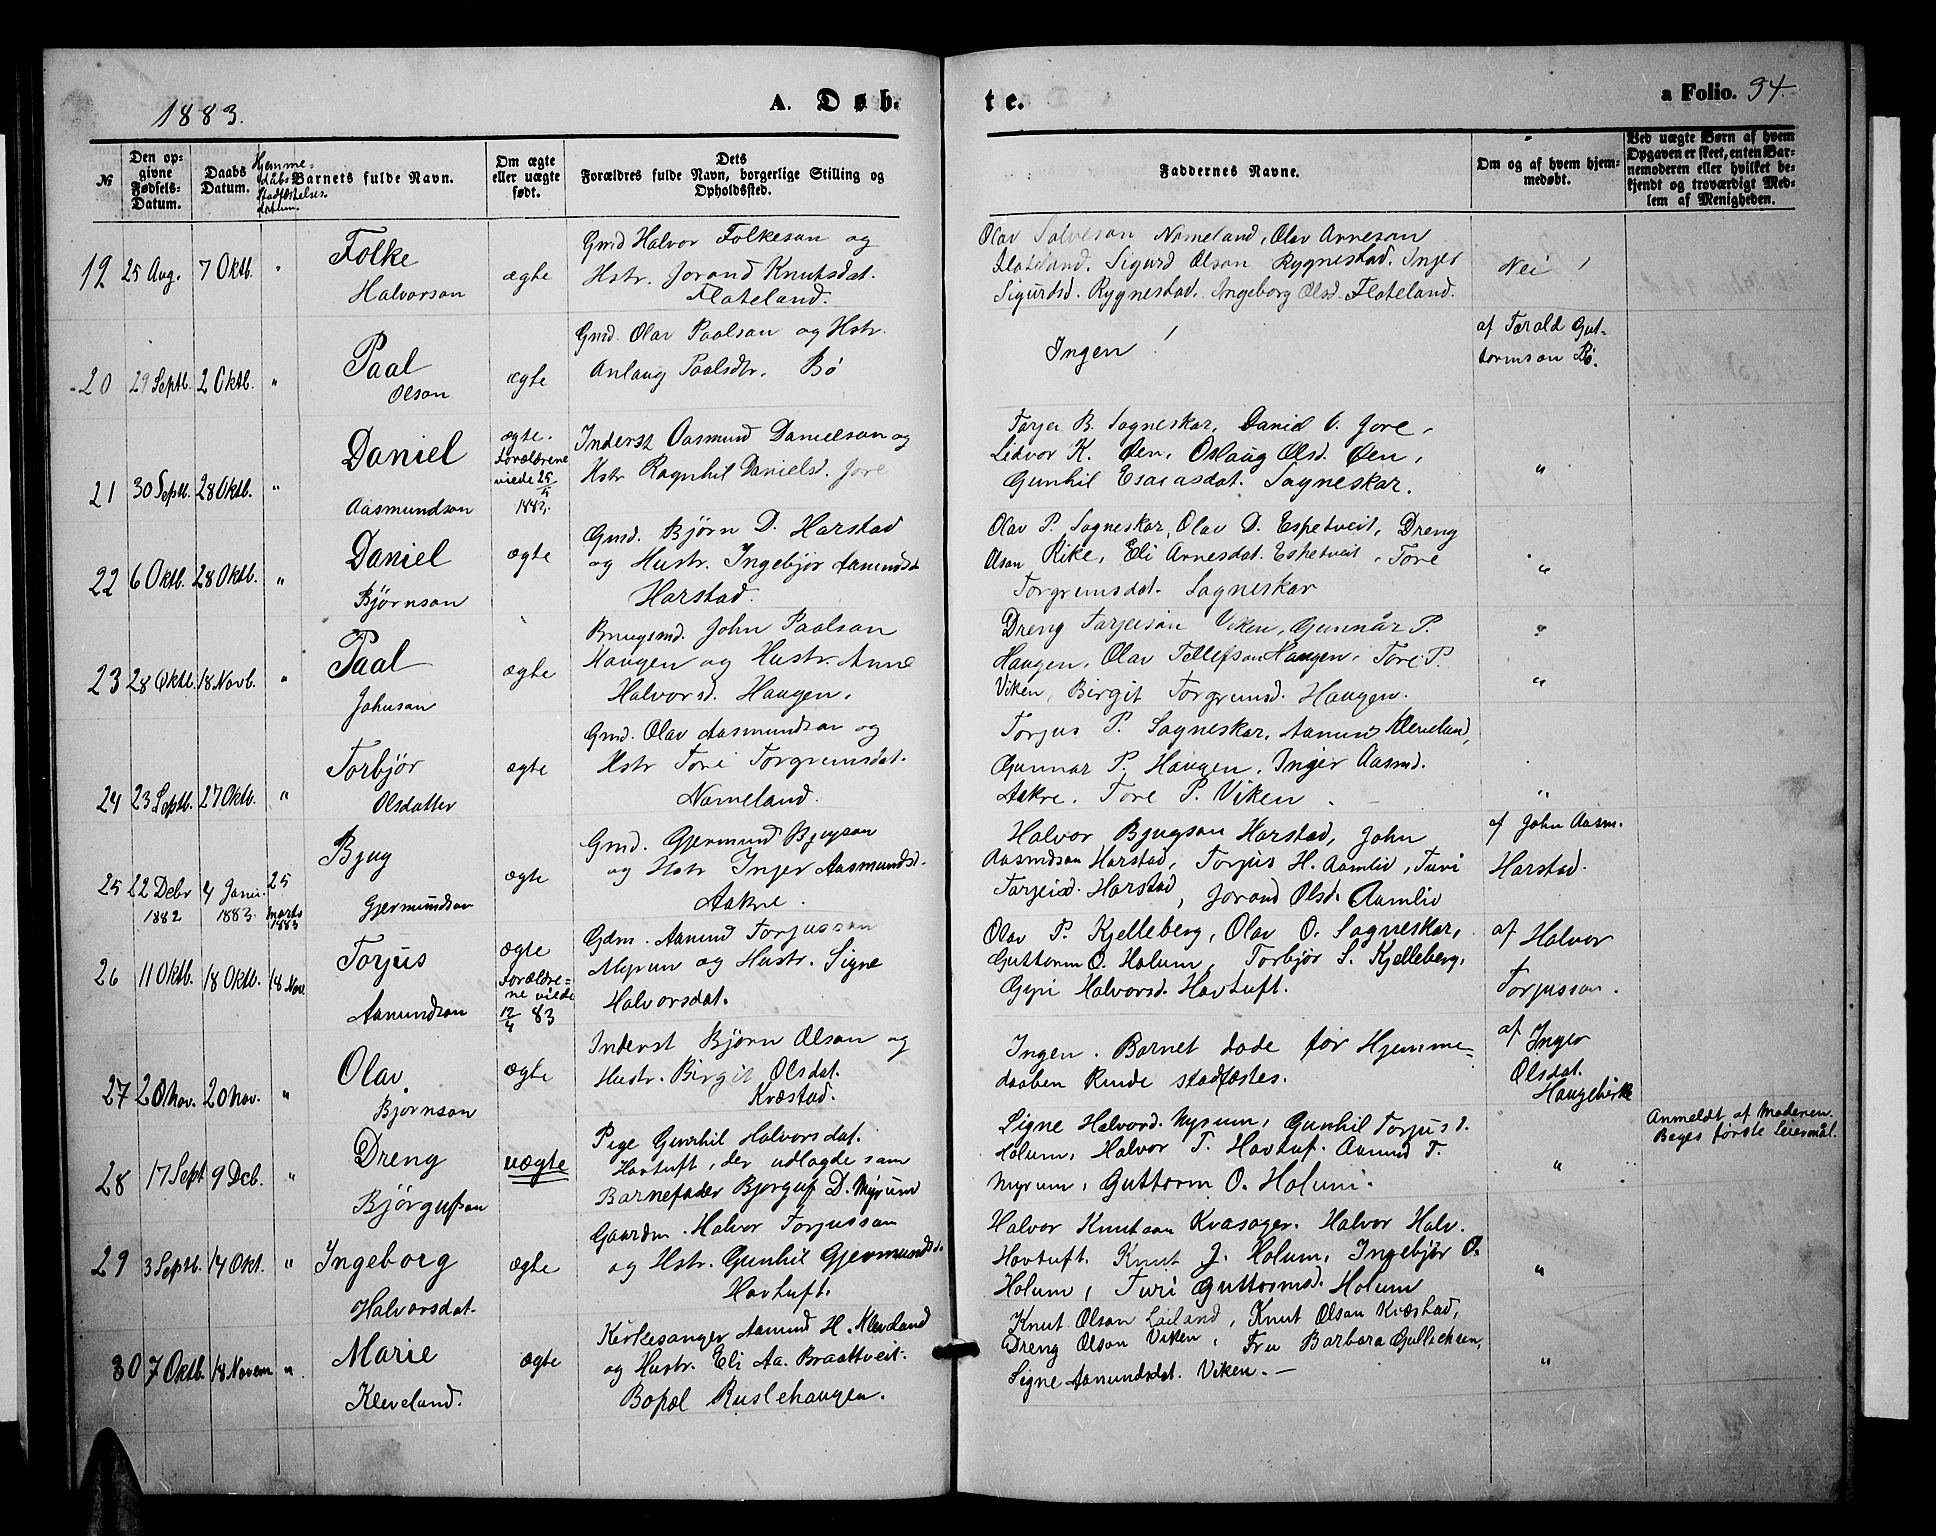 1883.
A. Døb-
te.
a Folio. 34.
№
Den op-
givne
Fødsels-
Datum.
Daabs
Datum.
Hjemme-
daabs
Stadfæstelses-
datum.
Barnets fulde Navn.
Om ægte
eller uægte
født.
Dets
Forældres fulde Navn, borgerlige Stilling og
Opholdssted.
Faddernes Navne.
Om og af hvem hjem-
medøbt.
Ved uægte Børn af hvem
Opgaven er skeet, enten Bar-
nemoderen eller hvilket be-
kjendt og troværdigt Med-
lem af Menigheden.
19 25 Aug. 7 Oktb. "
Folke
Halvorson
ægte
Gmd Halvor Folkeson og
Hstr. Jorand Knutsdat.
Flateland.
Olav Salveson Nomeland, Olav Arneson
Flateland. Sigurd Olson Rygnestad. Inger
Sigurdsd. Rygnestad. Ingeborg Olsd. Flateland.
Nei !
20 29 Septb. 2 Oktb. "
Paal
Olson
ægte
Gmd. Olav Paalson og Hstr.
Anlaug Paalsdtr. Bø
Ingen !
af Tarald Gut-
tormson Bø.
21 30 Septb. 28 Oktb. "
Daniel
Aasmundson
ægte.
Forældrene
viede 25/5
1883.
Inderst Aasmund Danielson og
Hstr Ragnhil Danielsd. Jore
Tarjer B. Sagneskar, Daniel O. Jore,
Lidvor K. Øen, Oslaug Olsd. Øen,
Gunhil Esaiasdat. Sagneskar.
"
22 6 Oktb. 28 Oktb. "
Daniel
Bjørnson
ægte
Gmd. Bjørn D. Harstad
og Hustr. Ingebjør Aamundsd
Harstad.
Olav P. Sagneskar, Olav D. Espetveit, Dreng
Olson Rike, Eli Arnesdat. Espetveit, Tore
Torgrimsdat. Sagneskar
"
23 28 Oktb. 18 Novb. "
Paal
Johnson
ægte
Brugsmd. John Paalson
Haugen og Hustr. Anne
Halvorsd. Haugen.
Dreng Tarjeison Viken, Gunnar P.
Haugen, Olav Tellefson Haugen, Tore P.
Viken, Birgit Torgrimsd. Haugen.
"
24 23 Septb. 27 Oktb. "
Torbjør
Olsdatter
ægte
Gmd. Olav Aasmundson og
Hstr Tore Torgrimsdat.
Nomeland.
Torjus P. Sagneskar, Aanund Kleveland,
Gunnar P. Haugen, Inger Aasmd.
Aakre, Tore P. Viken.
"
25 22 Debr
1882
4 Janu.
1883.
25
Marts
1883
Bjug
Gjermundson
ægte
Gmd. Gjermund Bjugson
og Hstr Inger Aasmundsd.
Aakre.
Halvor Bjugson Harstad, John
Aasmdson Harstad, Torjus H. Aamlid, Turi
Tarjeisd. Harstad, Jorand Olsd. Aamlid
af John Aasm.
Harstad.
26 11 Oktb. 18 Oktb. 18 Nov
Torjus
Aanundson
ægte
Forældre-
ne viede
12/4 83
Gdm. Aanund Torjusson
Myrum og Hustr. Signe
Halvorsdat.
Olav P. Kjelleberg, Olav O. Sagneskar,
Guttorm O. Holum, Torbjør S. Kjelleberg,
Gyri Halvorsd. Hovtuft.
af Halvor
Torjusson.
27 20 Nov. 20 Nov. "
Olav
Bjørnson
ægte
Inderst Bjørn Olson og
Hustr. Birgit Olsdat.
Kvæstad.
Ingen. Barnet døde før Hjemme-
daaben kunde stadfæstes.
af Inger
Olsdat.
Haugebirke
28 17 Sept 9 Dcb. "
Dreng
Bjørgufson
uægte
Pige Gunhil Halvorsdat.
Hovtuft, der udlagde som
Barnefader Bjørguf D. Myrum
Signe Halvord. Myrum, Gunhil Torjusd.
Holum, Halvor T. Hovtuf. Aanund T.
Myrum, Guttorm O. Holum.
"
Anmeldt af Moderen.
Beges første Leiermål.
29 3 Septb. 14 Okt. "
Ingeborg
Halvorsdat.
ægte
Gaardm. Halvor Torjusson
og Hstr. Gunhil Gjermundsd.
Hovtuft.
Halvor Knutson Kvasager. Halvor Halv.
Hovtuft. Knut J. Holum, Ingebjør O.
Holum, Turi Guttormsd. Holum
"
30 7 Oktb. 18 Novem "
Marie
Kleveland.
ægte
Kirkesanger Aanund H. Kleveland
og Hustr. Eli Aa. Braattveit.
Bopæl Ruslehaugen.
Knut Olson Leiland, Knut Olson Kvæstad,
Dreng Olson Viken, Fru Barbara Gullichsen,
Signe Aamundsdat. Viken. —
"